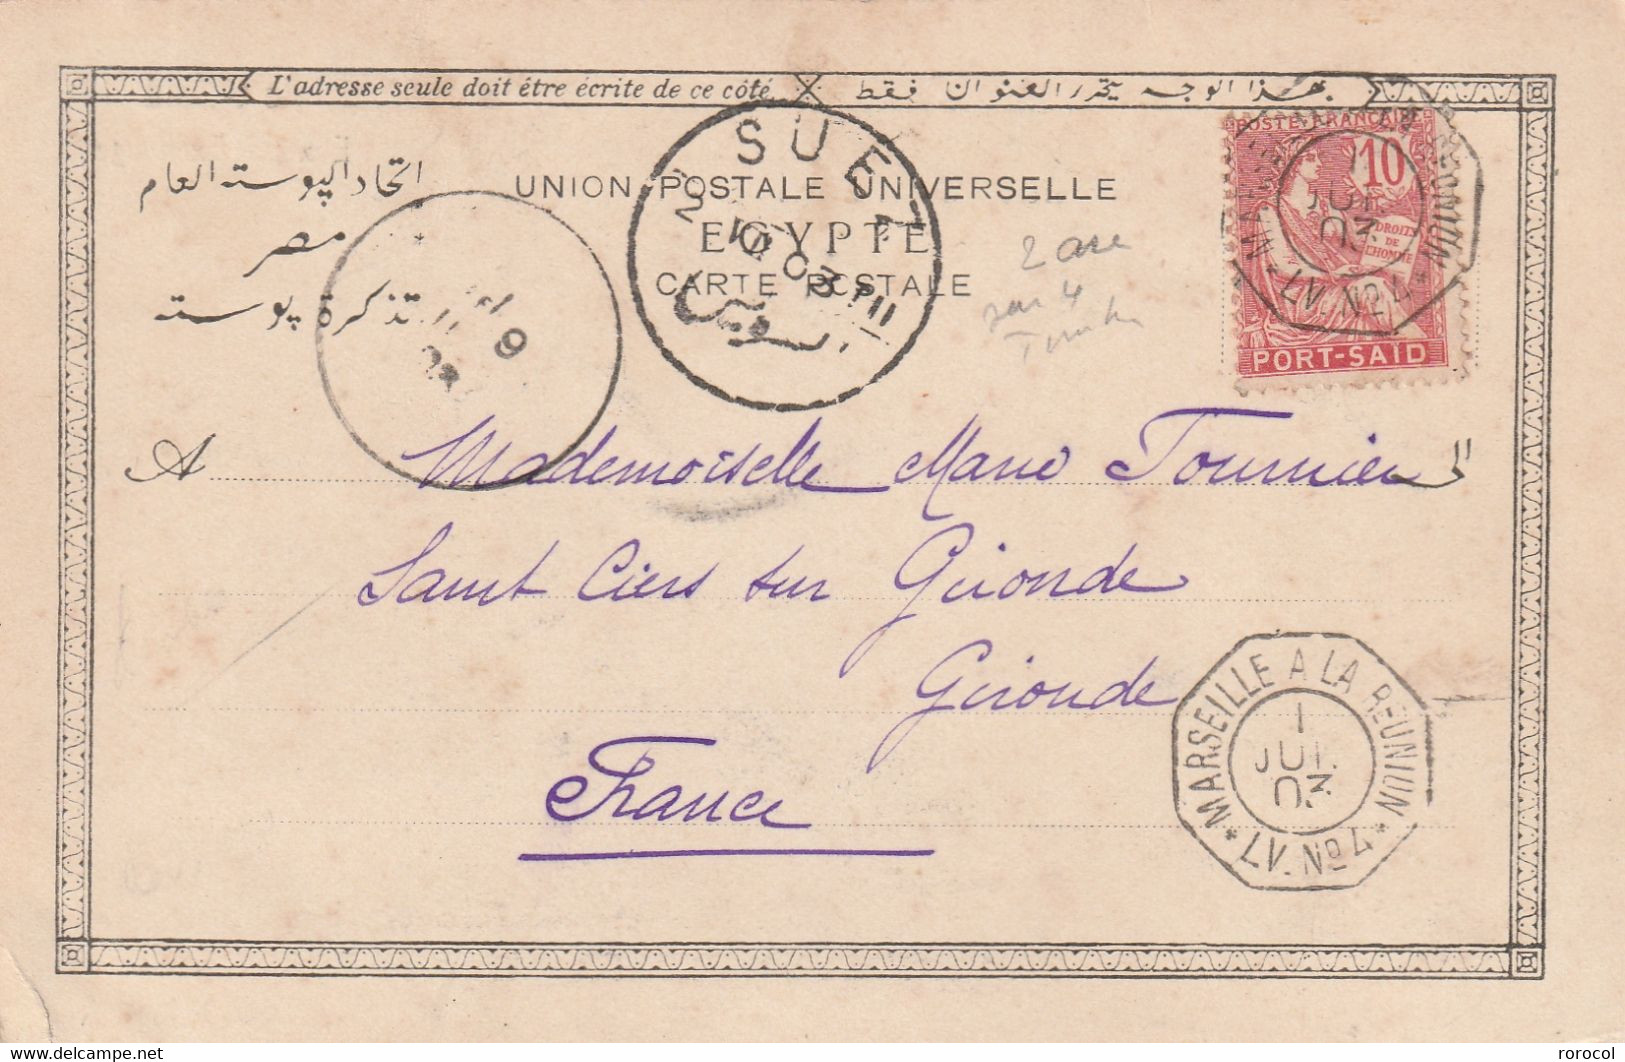 L'adresse seule doit être écrite de ce côté. بهذا الوجه يحرر العنوان فقط
اتحاد البوسته العام
مصر
تذكرة بوسته
UNION POSTALE UNIVERSELLE
EGYPTE
CARTE POSTALE
SUEZ
2 VII 03
السويس
9
2 are
sur 4
POSTE FRANÇAISE
10
DROITS
DE
L'HOMME
PORT-SAÏD
1
JUIL.
03
LV. No 4
A Mademoiselle Marie Tournier الى
Saint Ciers sur Gironde
Gironde
France
* MARSEILLE A LA REUNION *
1
JUIL.
03
LV. No 4
www.delcampe.net
rorocol